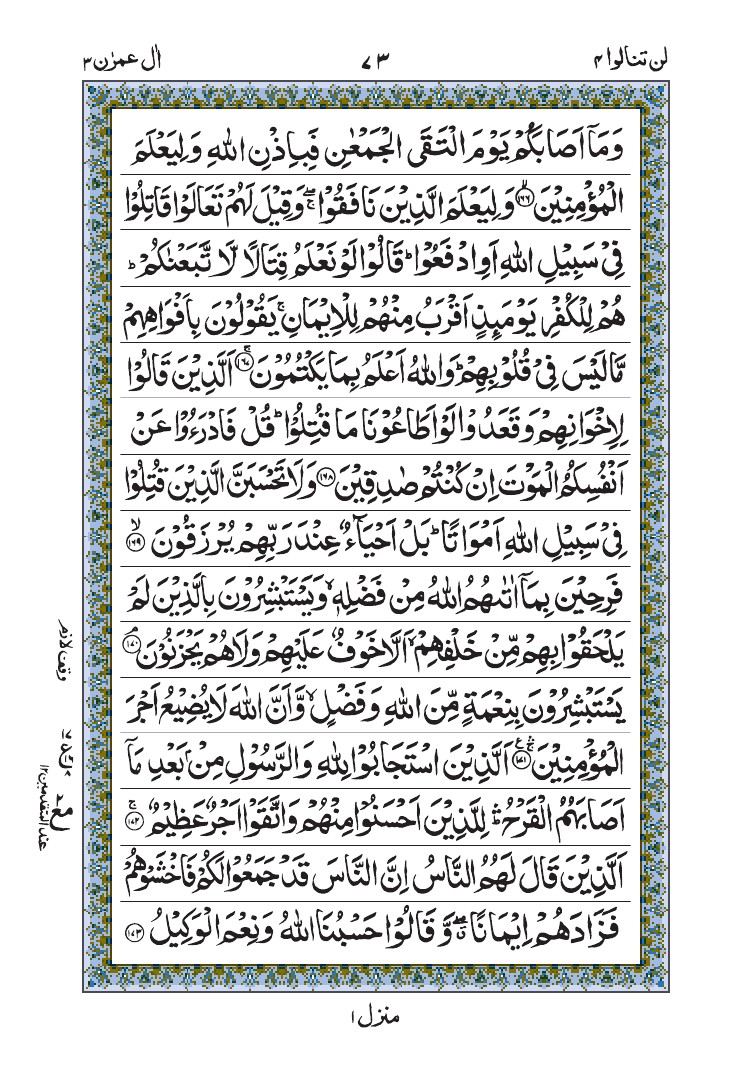 لن تنالوا ۴
۷۳
اٰل عمرٰن ۳
وَمَاۤ اَصَابَكُمْ يَوْمَ الْتَقَى الْجَمْعٰنِ فَبِاِذْنِ اللّٰهِ وَلِيَعْلَمَ
الْمُؤْمِنِيْنَ ۙ‏﴿۱۶۶﴾ وَلِيَعْلَمَ الَّذِيْنَ نَافَقُوْا ۖۚ وَقِيْلَ لَهُمْ تَعَالَوْا قَاتِلُوْا
فِىْ سَبِيْلِ اللّٰهِ اَوِ ادْفَعُوْا ؕ قَالُوْا لَوْ نَعْلَمُ قِتَالًا لَّا تَّبَعْنٰكُمْ ؕ
هُمْ لِلْكُفْرِ يَوْمَٮِٕذٍ اَقْرَبُ مِنْهُمْ لِلْاِيْمَانِ ۚ يَقُوْلُوْنَ بِاَفْوَاهِهِمْ
مَّا لَيْسَ فِىْ قُلُوْبِهِمْ ؕ وَاللّٰهُ اَعْلَمُ بِمَا يَكْتُمُوْنَ ۚ‏﴿۱۶۷﴾ اَلَّذِيْنَ قَالُوْا
لِاِخْوَانِهِمْ وَقَعَدُوْا لَوْ اَطَاعُوْنَا مَا قُتِلُوْا ؕ قُلْ فَادْرَءُوْا عَنْ
اَنْفُسِكُمُ الْمَوْتَ اِنْ كُنْتُمْ صٰدِقِيْنَ ‏﴿۱۶۸﴾ وَلَا تَحْسَبَنَّ الَّذِيْنَ قُتِلُوْا
فِىْ سَبِيْلِ اللّٰهِ اَمْوَاتًا ؕ بَلْ اَحْيَآءٌ عِنْدَ رَبِّهِمْ يُرْزَقُوْنَ ۙ‏﴿۱۶۹﴾
فَرِحِيْنَ بِمَاۤ اٰتٰٮهُمُ اللّٰهُ مِنْ فَضْلِهٖ ۙ وَيَسْتَبْشِرُوْنَ بِالَّذِيْنَ لَمْ
يَلْحَقُوْا بِهِمْ مِّنْ خَلْفِهِمْ ۙ اَلَّا خَوْفٌ عَلَيْهِمْ وَلَا هُمْ يَحْزَنُوْنَ ۘ‏﴿۱۷۰﴾
يَسْتَبْشِرُوْنَ بِنِعْمَةٍ مِّنَ اللّٰهِ وَفَضْلٍ ۙ وَّاَنَّ اللّٰهَ لَا يُضِيْعُ اَجْرَ
الْمُؤْمِنِيْنَ ۛۚ‏﴿۱۷۱﴾ اَلَّذِيْنَ اسْتَجَابُوْا لِلّٰهِ وَالرَّسُوْلِ مِنْۢ بَعْدِ مَاۤ
اَصَابَهُمُ الْقَرْحُ ۛؕ لِلَّذِيْنَ اَحْسَنُوْا مِنْهُمْ وَاتَّقَوْا اَجْرٌ عَظِيْمٌ ۚ‏﴿۱۷۲﴾
اَلَّذِيْنَ قَالَ لَهُمُ النَّاسُ اِنَّ النَّاسَ قَدْ جَمَعُوْا لَكُمْ فَاخْشَوْهُمْ
فَزَادَهُمْ اِيْمَانًا ۖۗ وَّقَالُوْا حَسْبُنَا اللّٰهُ وَنِعْمَ الْوَكِيْلُ ‏﴿۱۷۳﴾
وقف لازم
عند المتقدمين ۱۲
منزل ۱